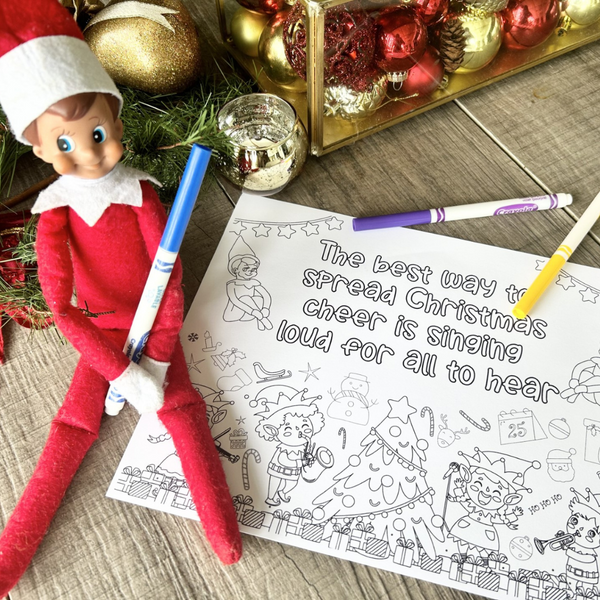 Crayola
The best way to
spread Christmas
cheer is singing
loud for all to hear
25
HO HO HO